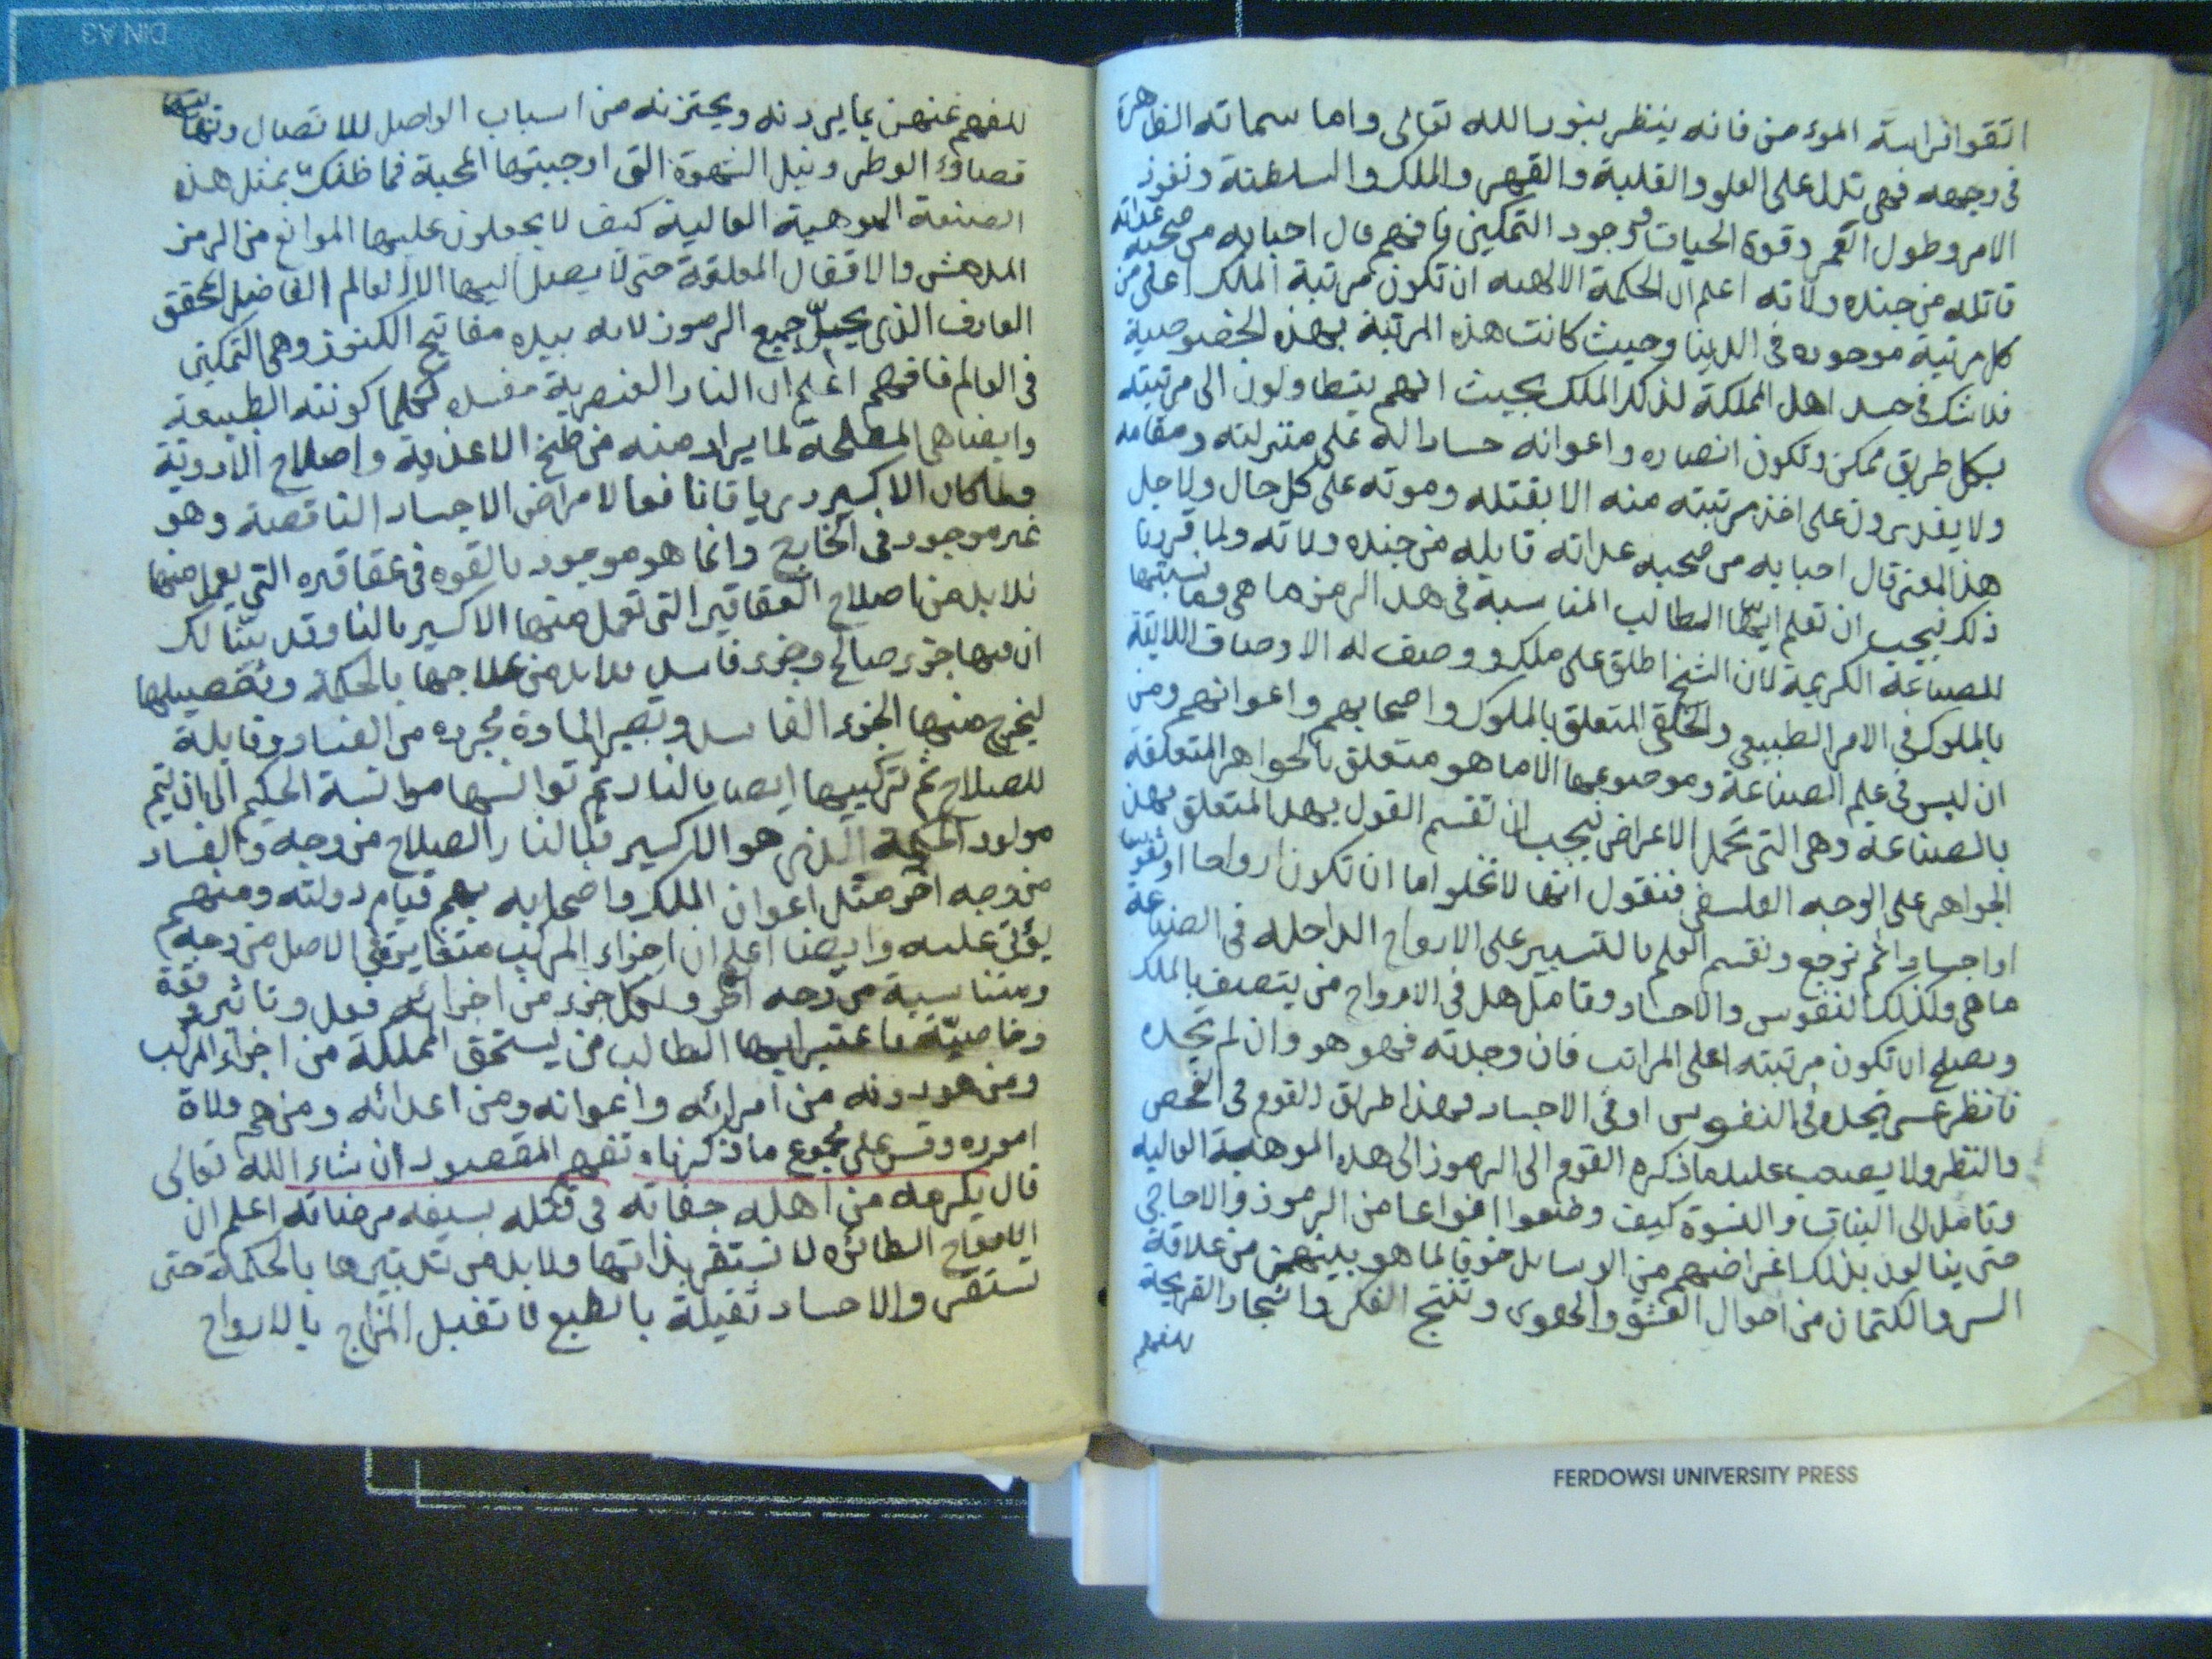 اتقوا فراسة المؤمن فانه ينظر بنور الله تعالى واما سماته الظاهرة
فى وجهه فهى تدل على العلو والغلبة والقهر والملك والسلطنة ونفوذ
الامر وطول العمر وقوة الحيات ووجود التمكين فافهم قال احبابه من صحبه عداته
قاتله من جنده ولاته اعلم ان الحكمة الالهيه ان تكون مرتبة الملك اعلى من
كل مرتبة موجوده فى الدينا وحيث كانت هذه المرتبة بهذه الخصوصية
فلا شك فى حسد اهل المملكة لذلك الملك بحيث انهم يتطاولون الى مرتبته
بكل طريق ممكن وتكون انصاره واعوانه حسادا له على منزلته ومقامه
ولا يقدرون على اخذ مرتبته منه الا بقتله وموته على كل حال ولاجل
هذا المعنى قال احبابه من صحبه عداته قاتله من جنده ولاته ولما قررنا
ذلك فيجب ان تعلم ايها الطالب المناسبة فى هذا الرمز ما هى وما نسبتها
للصناعة الكريمة لان الشيخ اطلق على ملك ووصف له الاوصاف اللايقة
بالملوك فى الامر الطبيعى والخلقى المتعلق بالملوك واصحابهم واعوانهم ومن
ان ليس فى علم الصناعة وموضوعها الا ما هو متعلق بالجواهر المتعلقة
بالصناعة وهى التى تحمل الاعراض فيجب ان تقسم القول بهذا المتعلق بهذ
الجواهر على الوجه الفلسفى فنقول انها لا تخلوا اما ان تكون ارواحا او نفوسا
او اجسادا ثم نرجع ونقسم العلم بالتسيير على الارواح الداخله فى الصناعة
ما هى وكذلك النفوس والاجساد وتامل هل فى الارواح من يتصف بالملك
ويصلح ان تكون مرتبته اعلى المراتب فان وجدته فهو هو وان لم تجده
فانظر عسى تجده فى النفوس او فى الاجساد فهذا طريق القوم فى الفحص
والنظر ولا يصعب عليك ما ذكره القوم الى الرموز الى هذه الموهبة العالية
وتامل الى البنات والنسوة كيف وضعوا انواعا من الرموز والاحاجى
حتى ينالون بذلك اغراضهم من الوسايل خوفا لما هو بينهن من علاقة
السر والكتمان من احوال العشق والهوى وتنتج الفكر واشجار القريحة
للفهم
للفهم عنهن بما يردنه ويحتزنه من اسباب الواصل للاتصال ونهاية
قضاء الوطر ونيل الشهوة التى اوجبتها المحبة فما ظنك بمثل هذه
الصنعة الموهبية العالية كيف لا يجعلون عليها الموانع من الرمز
المدهش والاقفال المغلقة حتى لا يصل اليها الا العالم الفاضل المحقق
العارف الذى يحل جميع الرموز لانه بيده مفاتيح الكنوز وهى التمكين
فى العالم فافهم اعلم ان النار العنصرية مفسده لكلما كونته الطبيعة
وايضا هى المصلحة لما يراد منه من طبخ الاغذية واصلاح الادوية
ولما كان الاكسير درياقا نافعا لامراض الاجساد الناقصة وهو
غير موجود فى الخارج وانما هو موجود بالقوه فى عقاقيره التى يعمل منها
فلا بد من اصلاح العقاقير التى تعمل منها الاكسير بالنا وقد بينا لك
ان فيها جزء صالح وجزء فاسد فلا بد من علاجها بالحكمة وتفصيلها
ليخرج منها الجزء الفاسد وتصير المادة مجرده من الفساد وقابلة
للصلاح ثم تركيبها ايضا بالنار ثم توانسها موانسة الحكيم الى ان يتم
مولود الحكمة الذى هو الاكسير فبالنار الصلاح من وجه والفساد
من وجه اخر مثل اعوان الملك واصحابه بهم قيام دولته ومنهم
يؤتى عليه وايضا اعلم ان اجزاء المركب متغايرة فى الاصل من وجه
ومتناسبة من وجه اخر ولكل جزء من اجزائه فعل وتاثير وقوة
وخاصية فاعتبر ايها الطالب من يستحق المملكة من اجزاء المركب
ومن هو دونه من امرائه واعوانه ومن اعدائه ومن هم ولاة
اموره وقس على مجموع ما ذكرناه تفهم المقصود ان شاء الله تعالى
قال يكرهه من اهله جفاته فى قتله بسيفه مرضاته اعلم ان
الارواح الطائره لا تستقر بذاتها ولا بد من تدبيرها بالحكمة حتى
تستقر والاجساد ثقيلة بالطبع لا تقبل المزاج بالارواح
FERDOWSI UNIVERSITY PRESS
DIN A3